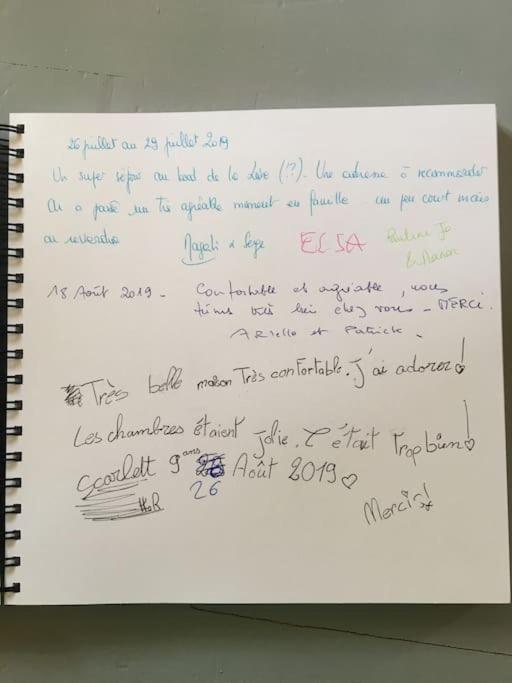 26 juillet au 29 juillet 2019
Un super séjour au bord de la Loire (!?). Une adresse à recommander
On a passé un très agréable moment en famille un peu court mais
on reviendra Magali & Serge ELSA Pauline Jo
& Manon
18 Août 2019 - Confortable et agréable, nous
étions très bien chez vous - MERCI.
Arielle et Patrick.
Très belle maison Très confortable. J'ai adorez!
Les chambres étaient jolie. C'était trop bien!
Scarlett 9 ans Août 2019
26
Mercis!